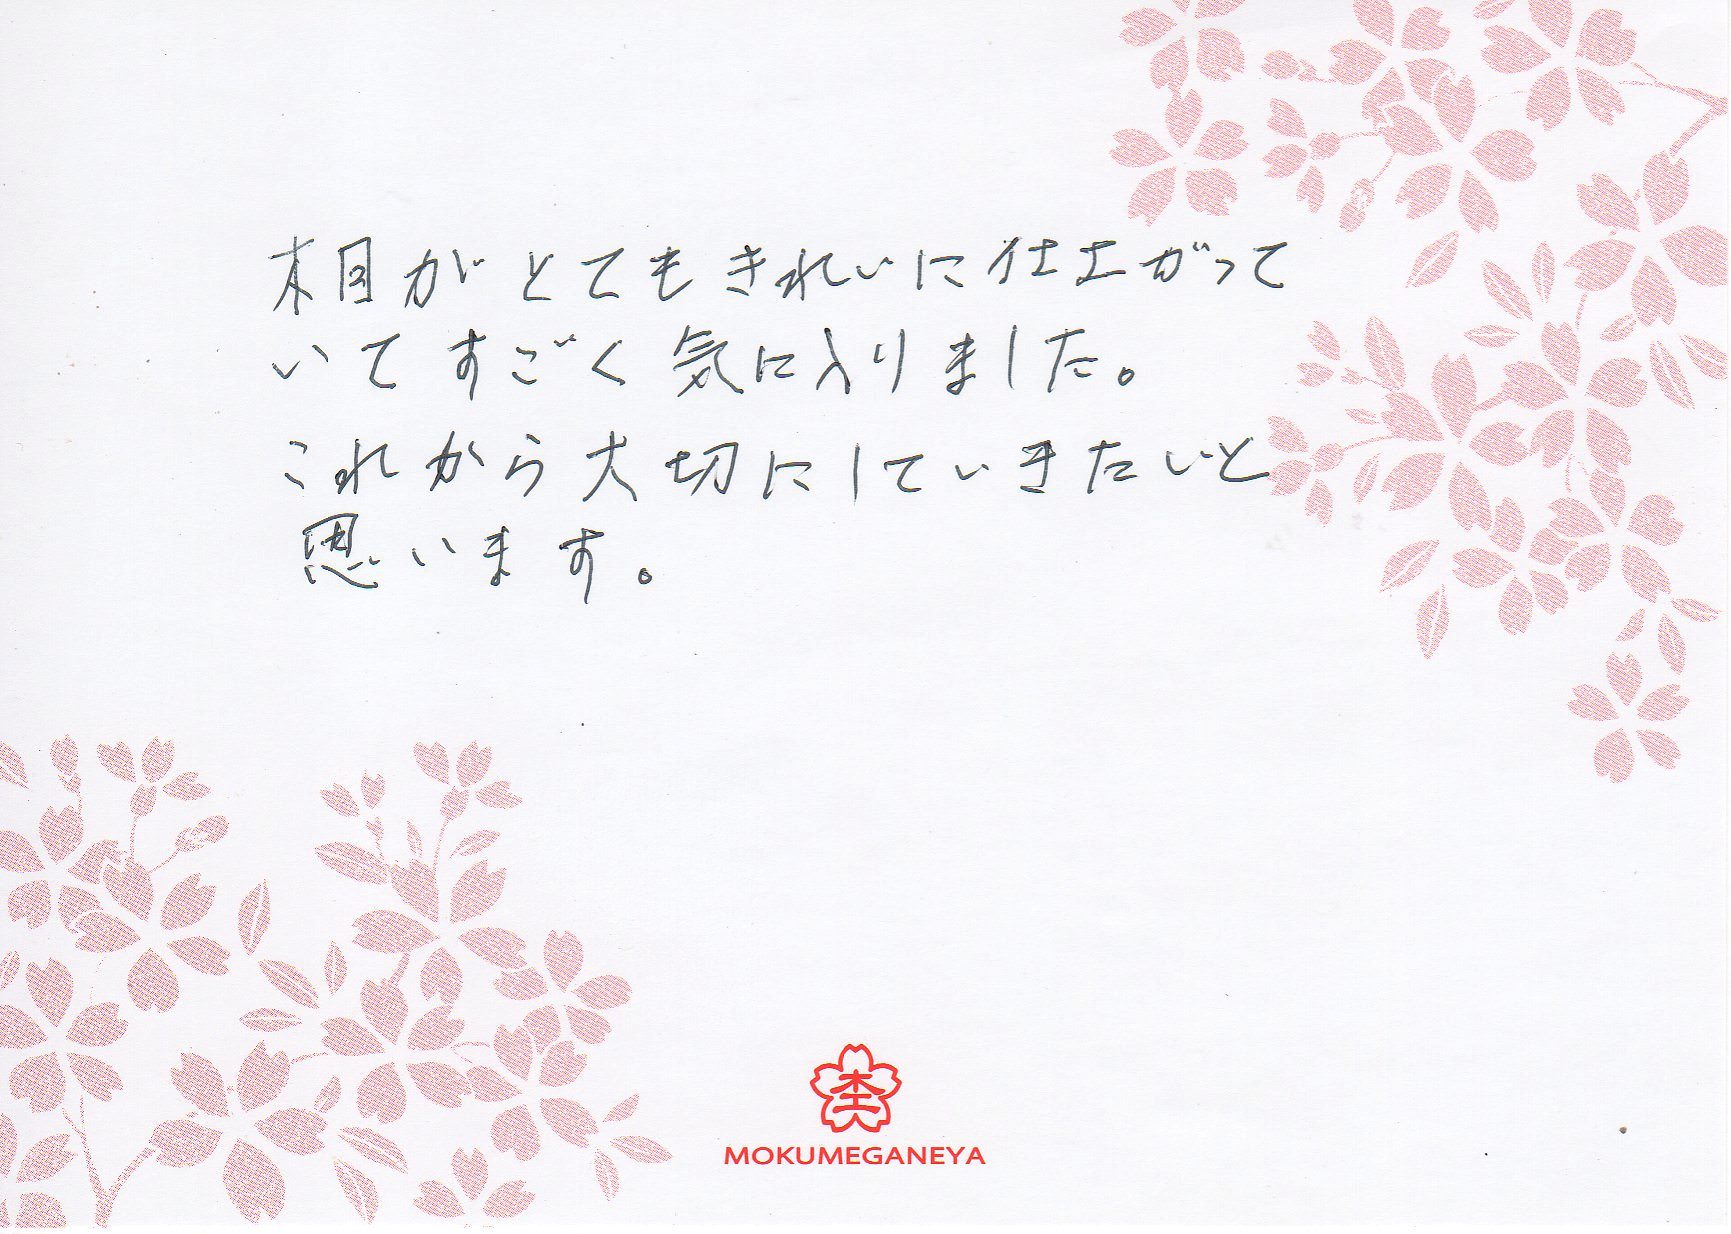 木目がとてもきれいに仕上がって
いてすごく気に入りました。
これから大切にしていきたいと
思います。
MOKUMEGANEYA